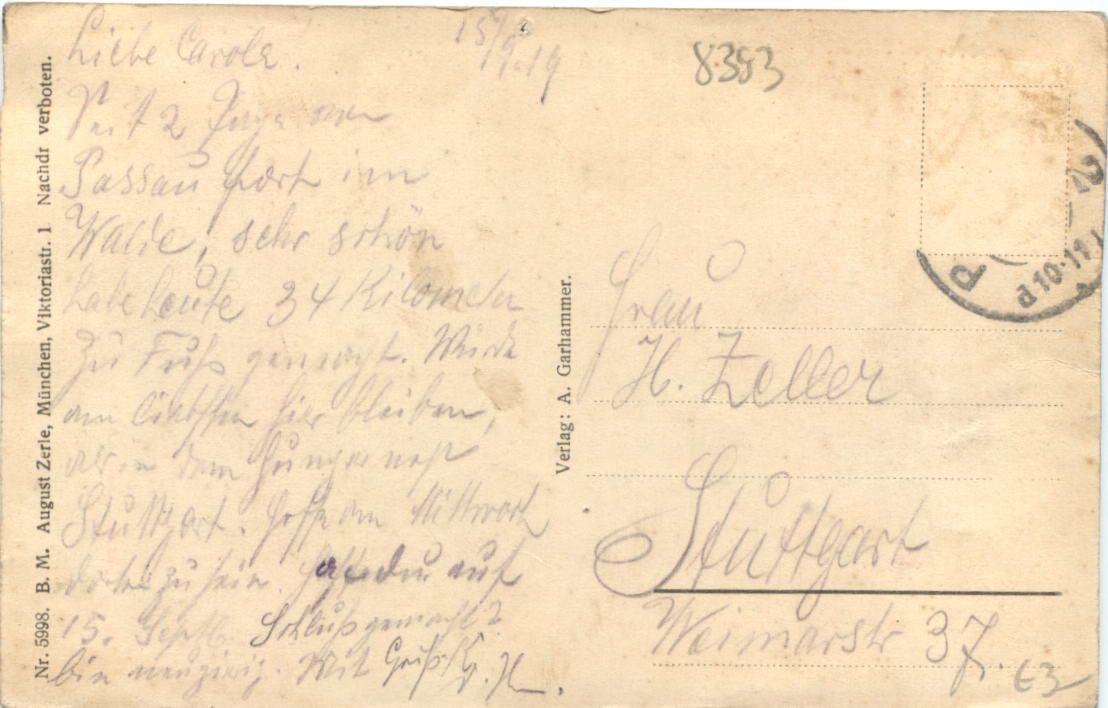 Nr. 5998. B. M. August Zerle, München, Viktoriastr. 1 Nachdr verboten.
15/9.19
Liebe Carole.
Seit 2 Tage von
Passau fort im
Walde, sehr schön
habe heute 34 Kilometer
zu Fuß gemacht. Würde
am liebsten hier bleiben,
als in dem Hungernest
Stuttgart. Hoffe am Mittwoch
dort zu sein. Hast du auf
15. Septb. Schluß gemacht?
bin neugierig. Mit Gruß
Verlag: A. Garhammer.
8383
d10-11
Frau
H. Zeller
Stuttgart
Weimarstr 37.
€3